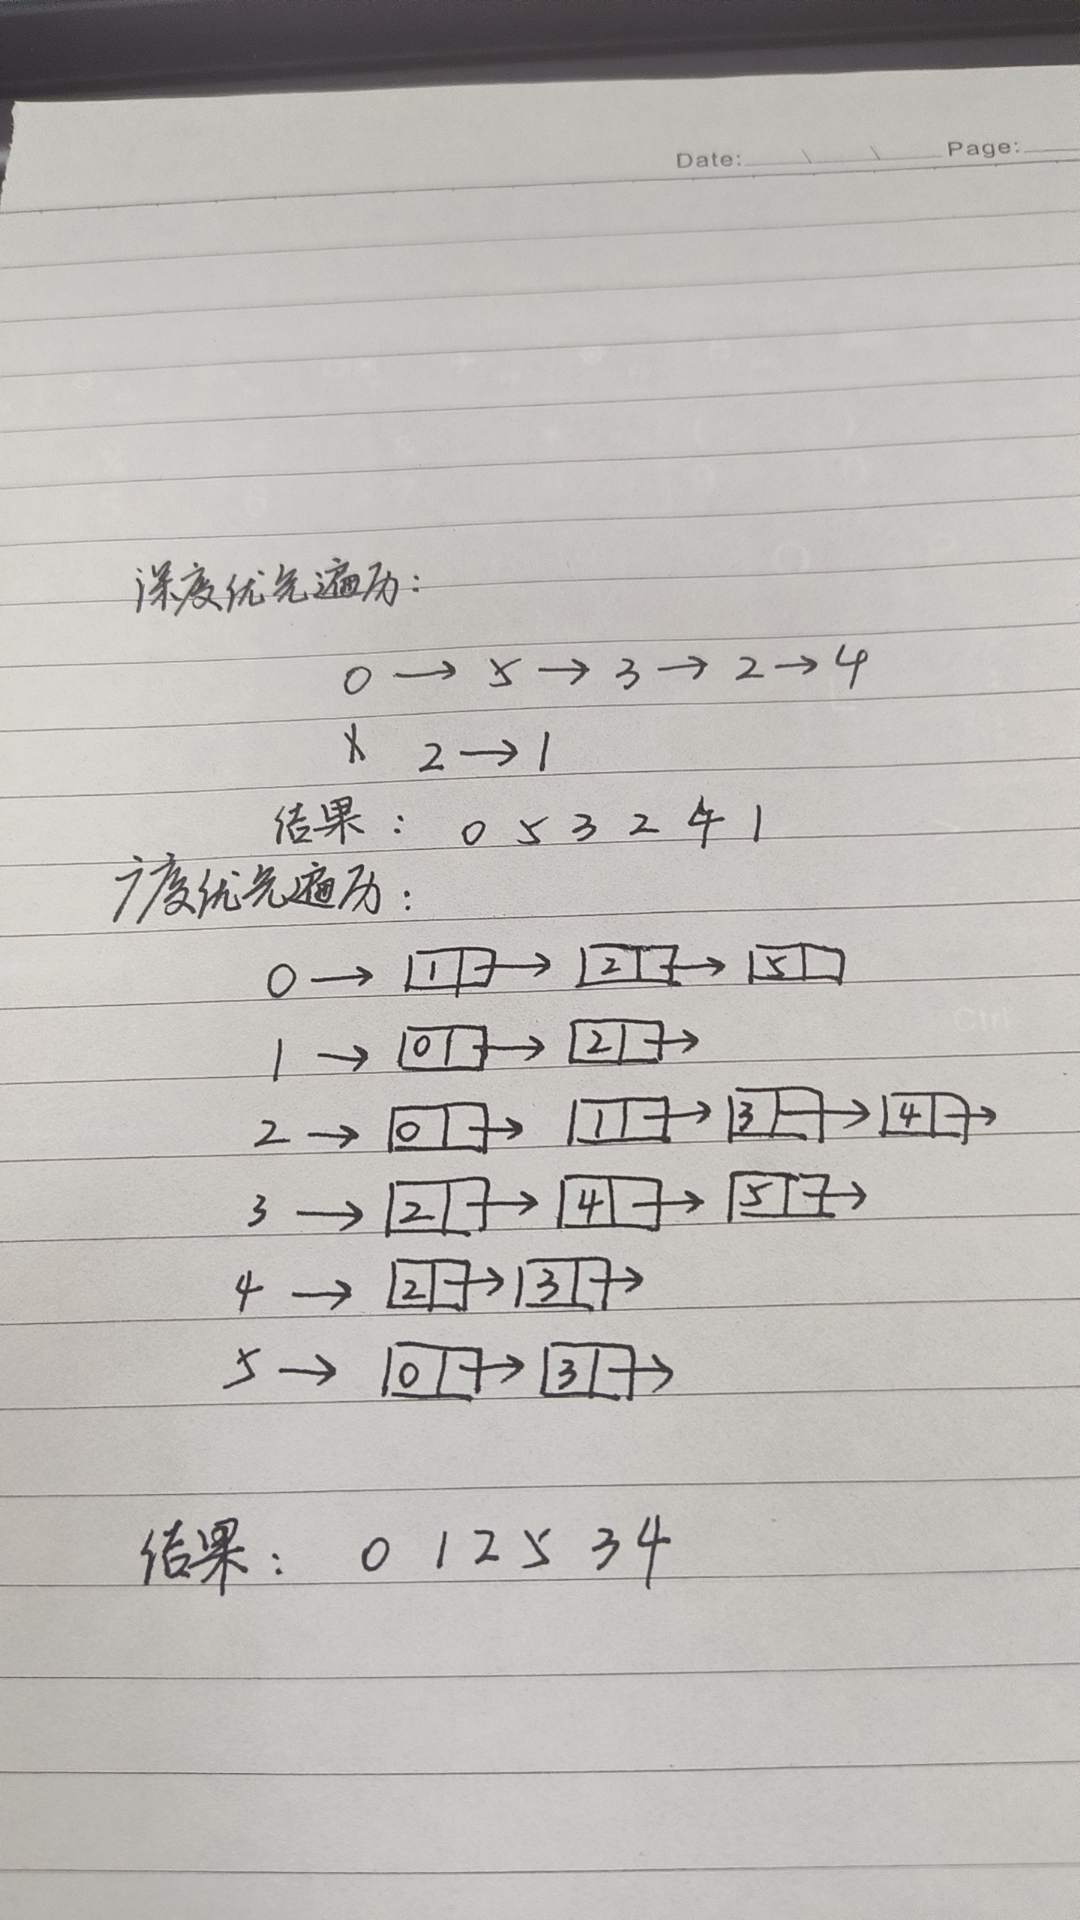 Date: Page:
深度优先遍历:
0 → 5 → 3 → 2 → 4
2 → 1
结果: 0 5 3 2 4 1
广度优先遍历:
0 → 1 → 2 → 5
1 → 0 → 2 →
2 → 0 → 1 → 3 → 4 →
3 → 2 → 4 → 5 →
4 → 2 → 3 →
5 → 0 → 3 →
结果: 0 1 2 5 3 4